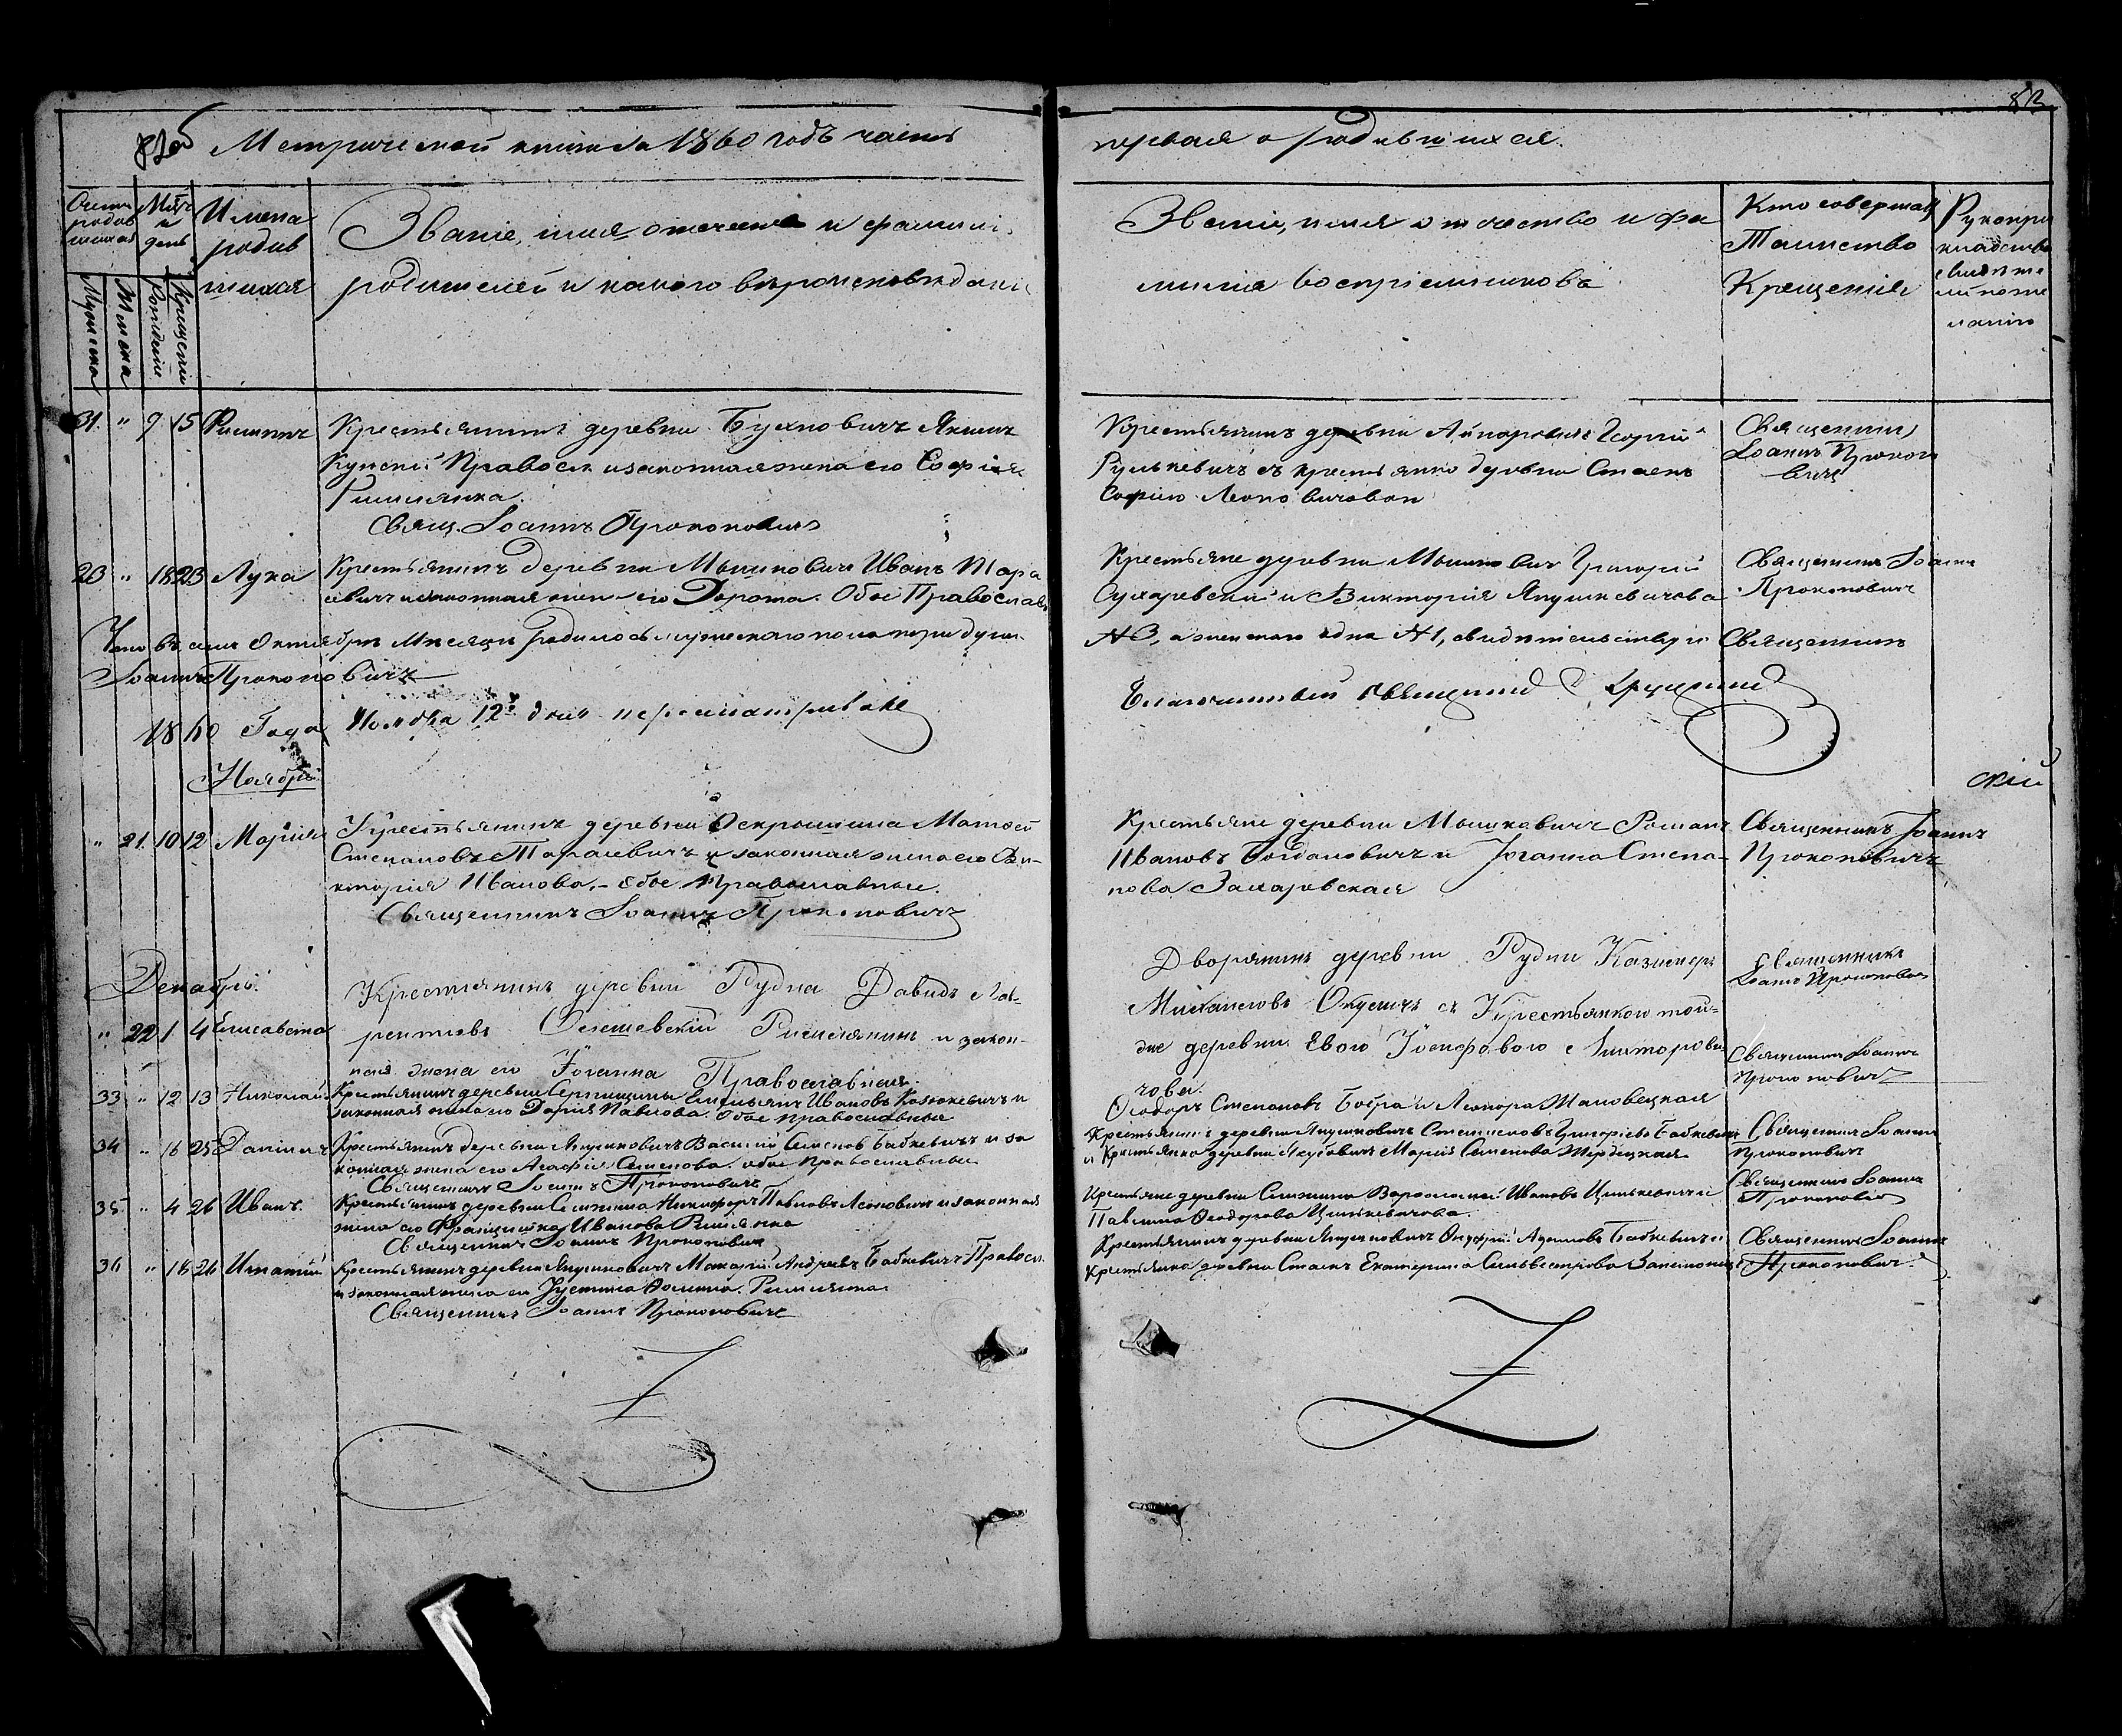 82об Метрической книги за 1860 годъ часть
первая о родившихся.
82
Счетъ родив шихся
Мѣсяцъ и день
Имена родив шихся
Званіе, имя отчество и фамилія
родителей и какого вѣроисповѣданія
Мужеска
Женска
Рожденія
Крещенія
Званіе, имя отчество и фа
милія воспріемниковъ
Кто совершалъ
Таинство
Крещенія
Рукопри
кладство
свидѣте
лей по же
ланію
31. " 9 15 Филиппъ Крестьянинъ деревни Бухновичъ Якимъ
Купскій Правосл. и законная жена его Софія
Римлянка.
Свящ. Іоаннъ Прокоповичъ
Крестьянинъ деревни Георгій
Рулькевичъ съ крестьянкою деревни Стаекъ
Софіею Леоновичовою
Священникъ
Іоаннъ Прокопо
вичъ
" 18 23 Лука Крестьянинъ деревни Мышковичъ Иванъ Тара
севичъ и законная жена его Дорота. Обое Православ.
Крестьяне деревни Мышковичъ Григорій
Сухаревскій и Викторія Янушкевичова
Священникъ Іоаннъ
Прокоповичъ
Что въ семъ Октябрѣ Мѣсяцѣ родилось мужескаго пола три души
№ 3, а женскаго одна № 1, свидѣтельствую Священникъ
Іоаннъ Прокоповичъ
1860 Года Ноября 12го дня пересматривалъ
Благочинный Священникъ
скій
Ноябрь
" 21. 10 12 Марія Крестьянинъ деревни Оскрышина Матѳей
Степановъ Тарасевичъ и законная жена его Ви-
кторія Иванова. - Обое Православные.
Священникъ Іоаннъ Прокоповичъ
Крестьяне деревни Мышковичъ Романъ
Ивановъ Богдановичъ и Іоганна Степа-
нова Захаровская
Священникъ Іоаннъ
Прокоповичъ
Декабрь.
" 22 1 4 Елисавета Крестьянинъ деревни Рудни Давидъ Лав-
рентіевъ Олешевскій Римлянинъ и закон-
ная жена его Іоганна Православная.
Дворянинъ деревни Рудни Казимеръ
Михайловъ съ Крестьянкою той-
же деревни Евою Іосифовою
човою.
Священникъ
Іоаннъ Прокоповичъ
33 " 12 13 Николай Крестьянинъ деревни Емельянъ Ивановъ Казюкевичъ и
законная жена его Дарія Павлова. Обое Православные
Ѳеодоръ Степановъ Бобра и Леонора Малавецкая
Священникъ Іоаннъ
Прокоповичъ
34 " 16 25 Даніилъ Крестьянинъ деревни Янушковичъ Василій Семеновъ Бабкевичъ и за
конная жена его Агафія Семенова. обое Православные
Священникъ Іоаннъ Прокоповичъ
Крестьянинъ деревни Янушковичъ Григоріевъ Бабкевичъ
и Крестьянка деревни Якубовичъ Марія Семенова Жердецкая
Священникъ Іоаннъ
Прокоповичъ
35 " 4 26 Иванъ. Крестьянинъ деревни Селжина Никифоръ Павловъ Леоновичъ и законная
жена его Францишка Иванова Римлянка
Священникъ Іоаннъ Прокоповичъ
Крестьяне деревни Селжина Варѳоломей Ивановъ Цинкевичъ и
Павлина Ѳеодорова Цинкевичова.
Священникъ Іоаннъ
Прокоповичъ
36 " 18 26 Игнатій Крестьянинъ деревни Янушковичъ Макарій Андреевъ Бабкевичъ Правосл.
и законная жена его Юстина Ѳомина. Римлянка
Священникъ Іоаннъ Прокоповичъ
Крестьянинъ деревни Янушковичъ Онуфрій Адамовъ Бабкевичъ и
Крестьянка деревни Стаекъ Екатерина Сильвестрова
Священникъ Іоаннъ
Прокоповичъ.